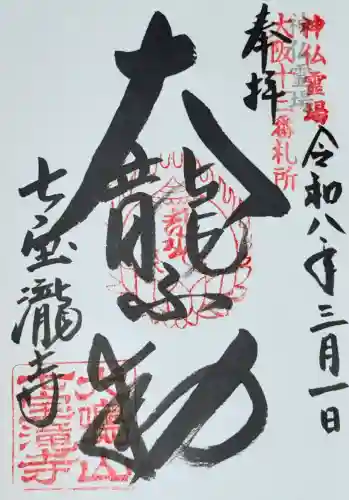 奉拝
神仏霊場
大阪十三番札所
令和八年三月一日
大龍不動
七宝瀧寺
犬鳴山
七宝滝寺